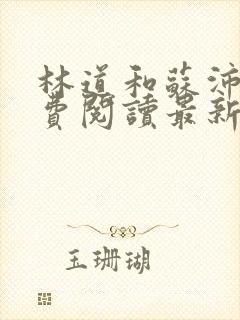 林道和蘇沛
費閱讀最新
玉珊瑚